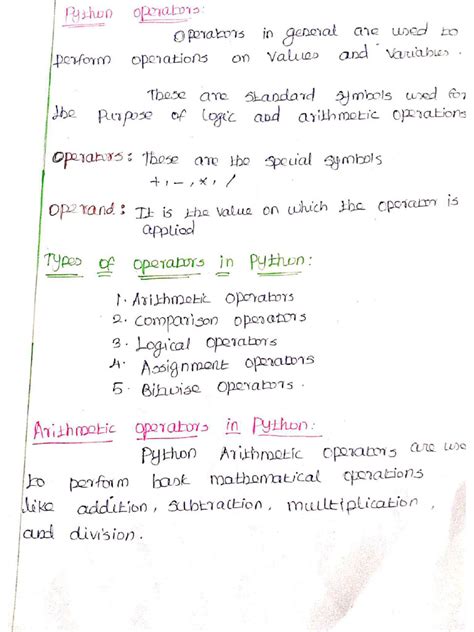 Python operators:
Operators in general are used to
perform operations on values and variables.
These are standard symbols used for
the purpose of logic and arithmetic operations
Operators: These are the special symbols
+, -, x, /
Operand: It is the value on which the operator is
applied
Types of operators in Python:
1. Arithmetic operators
2. Comparison operators
3. Logical operators
4. Assignment operators
5. Bitwise operators.
Arithmetic operators in Python:
Python Arithmetic operators are use
to perform basic mathematical operations
like addition, subtraction, multiplication,
and division.